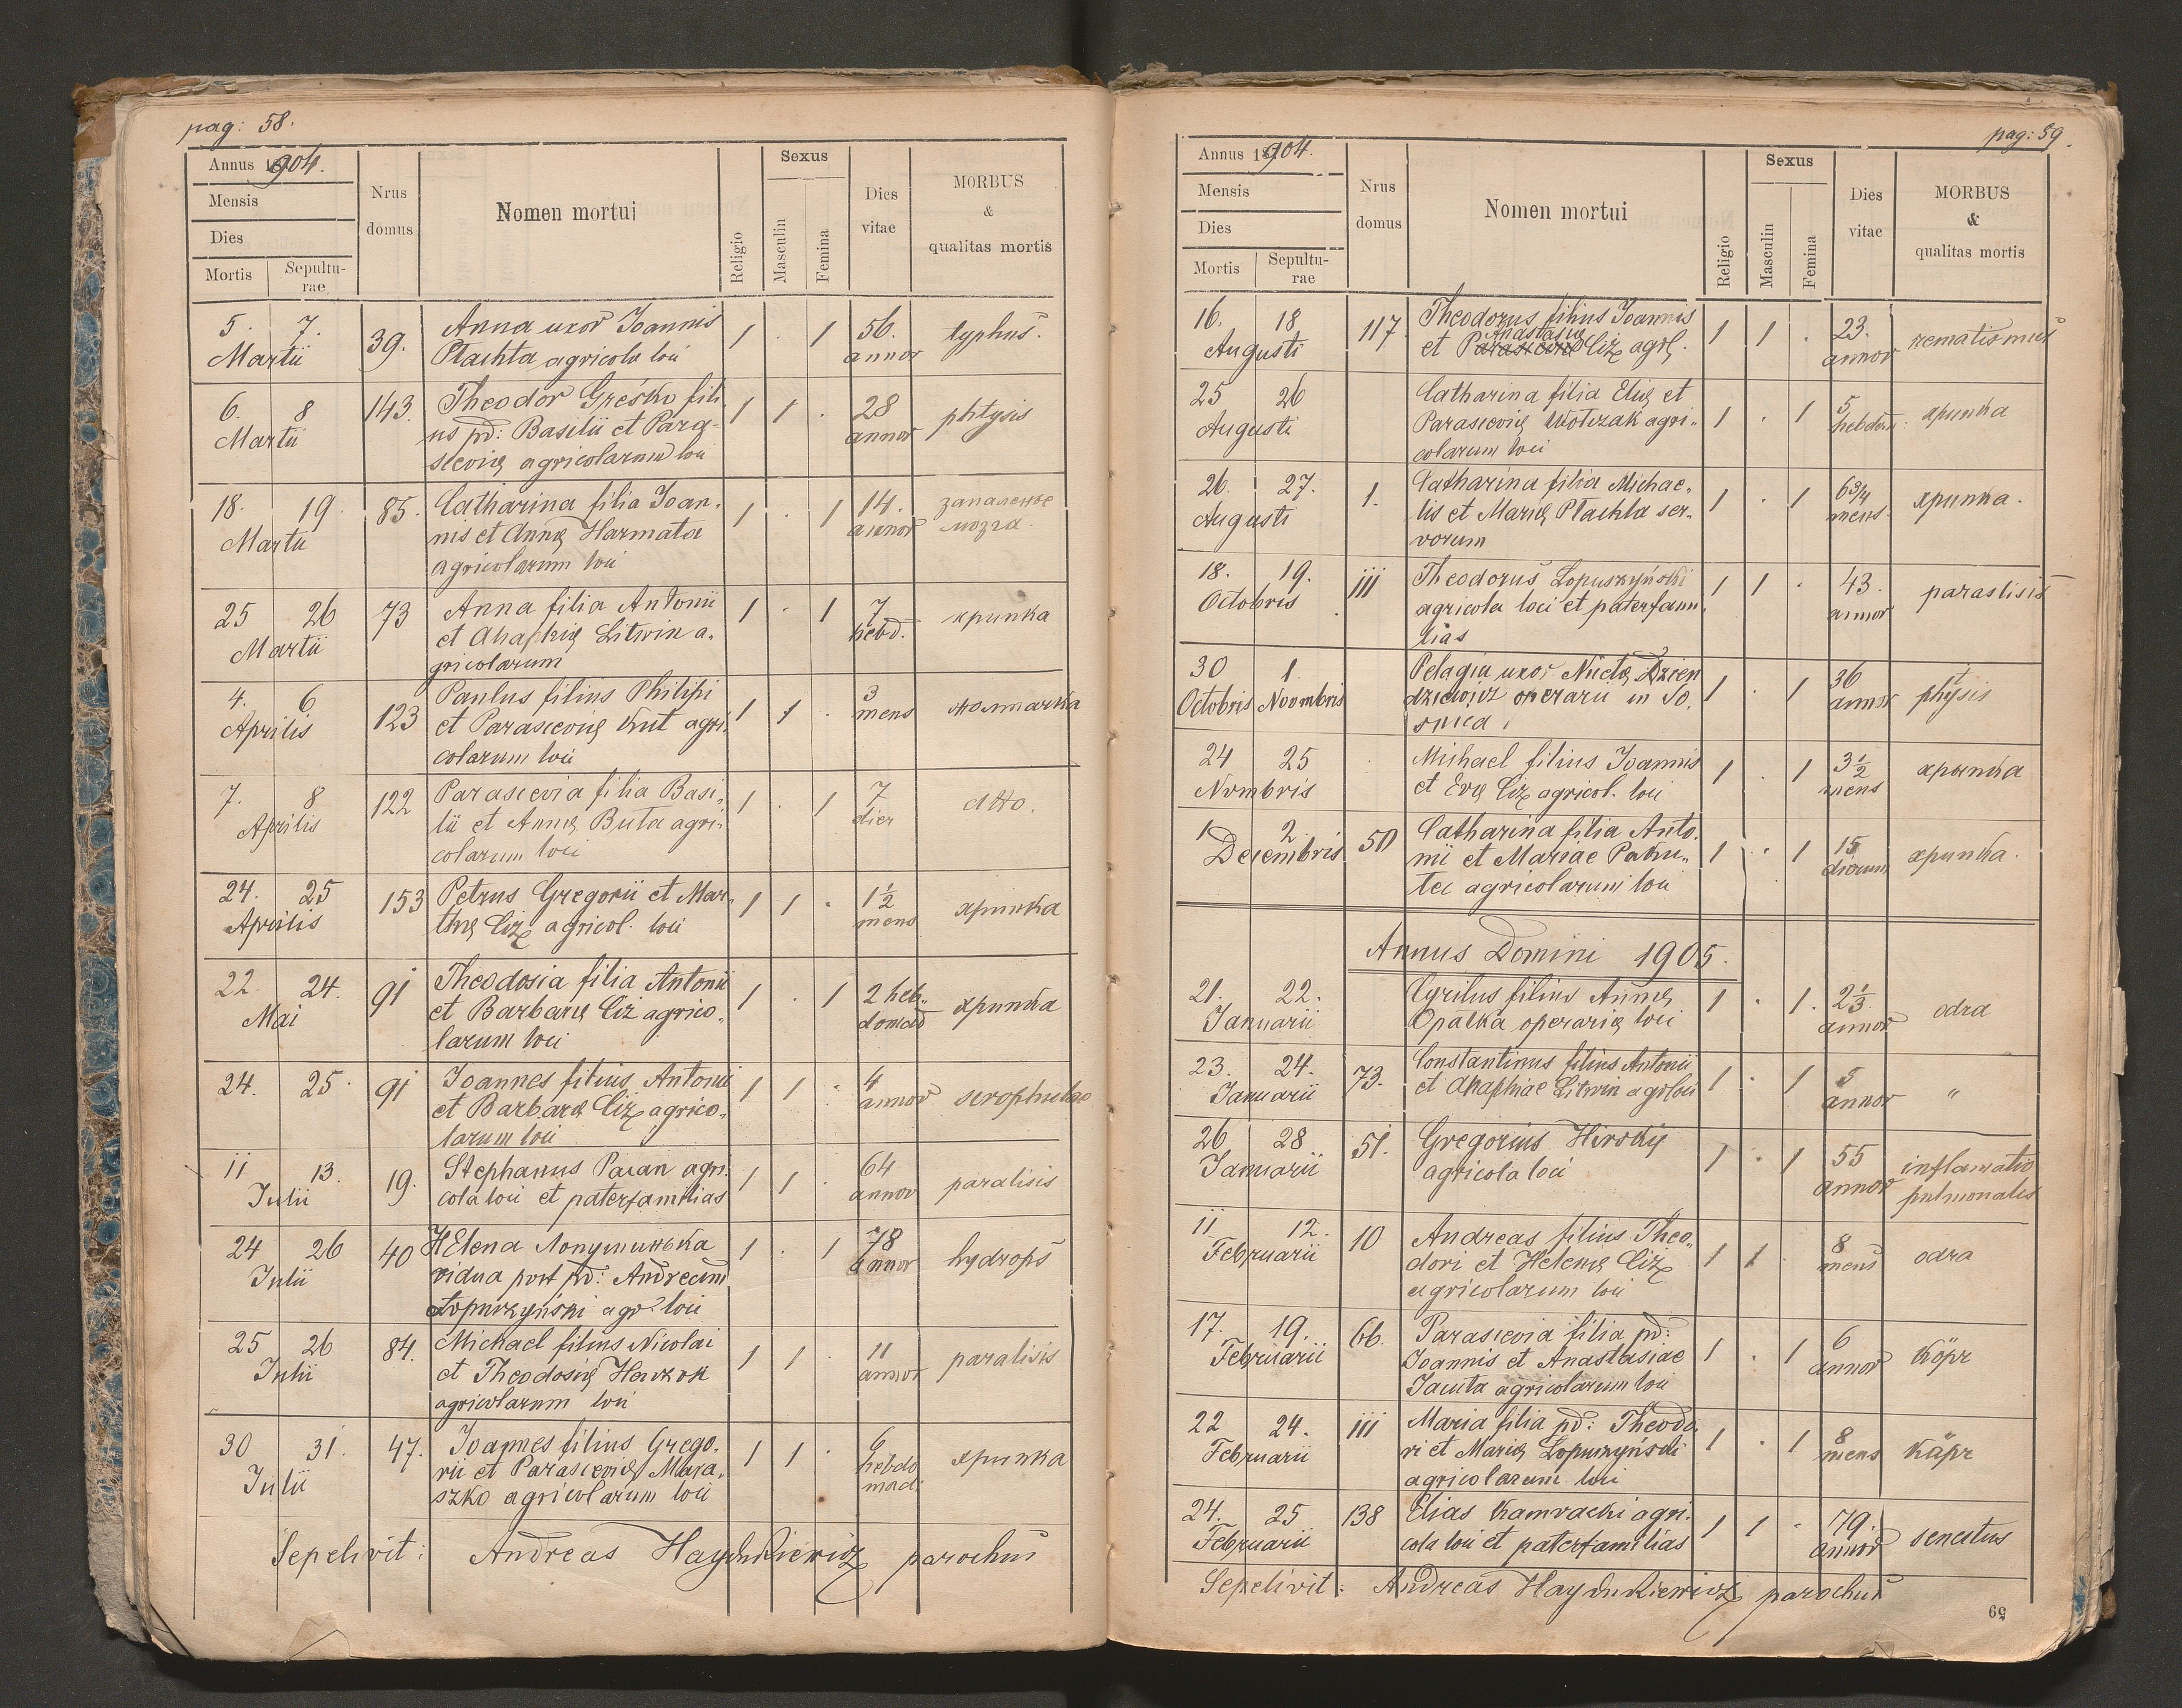 pag: 58.
Annus 1904.
Mensis
Dies
Mortis Sepulturae
Nrus domus
Nomen mortui
Religio
Sexus
Masculin
Femina
Dies vitae
MORBUS & qualitas mortis
5. 7. 39. Anna uxor Joannis 1 . 1 56. typhus.
Martii Ptachta agricola loci annor
6. 8 143. Theodor Greśko fili- 1 1 . 28 phtysis
Martii us pd: Basilii et Para- annor
scevię agricolarum loci
18. 19. 85. Catharina filia Joan- 1 . 1 14. запаленье
Martii nis et Annę Harmata annor мозга.
agricolarum loci
25 26 73 Anna filia Antonii 1 . 1 7 хрипка
Martii et Ahaphię Litwin a- hebd.
gricolarum
4. 6 123 Paulus filius Philipi 1 1 . 3
Aprilis et Parascevię Kut agri- mens
colarum loci
7. 8 122 Parascevia filia Basi- 1 . 1 7 dtto.
Aprilis lii et Annę Buta agri- dier
colarum loci
24. 25 153 Petrus Gregorii et Mar- 1 1 . 1½ хрипка
Aprilis thę Ciż agricol. loci mens
22. 24. 91 Theodosia filia Antonii 1 . 1 2 heb- хрипка
Mai et Barbarę Ciż agrico- domad
larum loci
24. 25. 91 Joannes filius Antonii 1 1 . 4
et Barbarę Ciż agrico- annor
larum loci
11 13. 19. Stephanus Pacan agri- 1 1 . 64 paralisis
Julii cola loci et paterfamilias annor
24 26 40 HElena Лопушиньска 1 . 1 78 hydrops
Julii vidua post pd: Andream annor
Łopuszyński agr. loci
25 26 84. Michael filius Nicolai 1 1 . 11 paralisis
Julii et Theodosię annor
agricolarum loci
30 31. 47. Joannes filius Grego- 1 1 . 6 хрипка
Julii rii et Parascevię hebdo
szko agricolarum loci mad.
Sepelivit: Andreas Haydukiewicz parochus
pag: 59.
Annus 1904.
Mensis
Dies
Mortis Sepulturae
Nrus domus
Nomen mortui
Religio
Sexus
Masculin
Femina
Dies vitae
MORBUS & qualitas mortis
16. 18 117. Theodorus filius Joannis 1 1 . 23. rematismus
Anastasię
Augusti et Parascevię Ciż agr. annor
25 26 Catharina filia Elię et 1 . 1 5 хрипка
Augusti Parascevię Wołczak agri- hebdom:
colarum loci
26. 27. 1. Catharina filia Michae- 1 . 1 6¾ хрипка.
Augusti lis et Marię Ptachta ser- mens.
vorum
18. 19. 111 Theodorus Łopuszyński 1 1 . 43. paraslisis
Octobris agricola loci et paterfami- annor
lias
30 1. Pelagia uxor 1 . 1 36 phtysis
Octobris Noombris operarii in So- annor
24 25 Michael filius Joannis 1 . 1 3½ хрипка
Nombris et Evę Ciż agricol. loci mens
1 2 50 Catharina filia Anto- 1 . 1 15 хрипка.
Decembris nii et Mariae dierum
agricolarum loci
Annus Domini 1905.
21. 22. Cyrilus filius Annę 1 . 1. 2⅓ odra
Januarii Opałka operarię loci annor
23. 24. 73. Constantinus filius Antonii 1 . 1 5 "
Januarii et Ahaphiae Litwin agr loci annor
26 28 51. Gregorius Hirskij 1 . 1 55 inflamatio
Januarii agricola loci annor pulmonalis
11 12. 10 Andreas filius Theo- 1 1 . 8 odra
Februarii dori et Helenę Ciż mens
agricolarum loci
17. 19. 66. Parascevia filia pd: 1 . 1 6 köpr
Februarii Joannis et Anastasiae annor
Jacuta agricolarum loci
22 24. 111 Maria filia pd: Theodo- 1 . 1 8 käpr
Februarii ri et Marię Łopuszyński mens
agricolarum loci
24. 25 138 Elias Kamracki agri- 1 1 . 79. senectus
Februarii cola loci et paterfamilias annor
Sepelivit: Andreas Haydukiewicz parochus
59